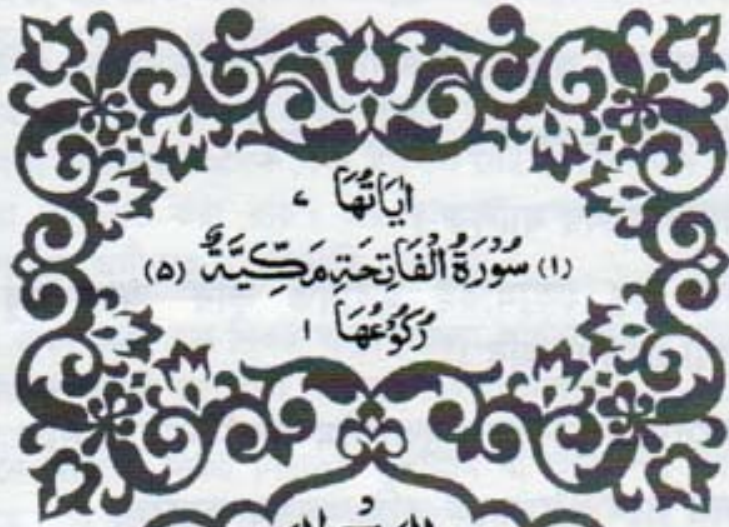 اٰيَاتُهَا ٧
(١) سُوْرَةُ الْفَاتِحَةِ مَكِّيَّةٌ (٥)
رُكُوْعُهَا ١